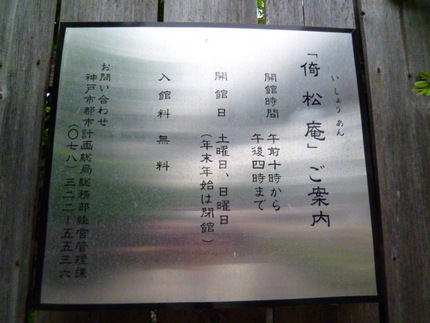 いしょうあん
「倚松庵」ご案内
開館時間 午前十時から
午後四時まで
開館日 土曜日、日曜日
(年末年始は閉館)
入館料 無料
お問い合わせ
神戸市都市計画総局総務部経営管理課
(〇七八)三二二-五五三六